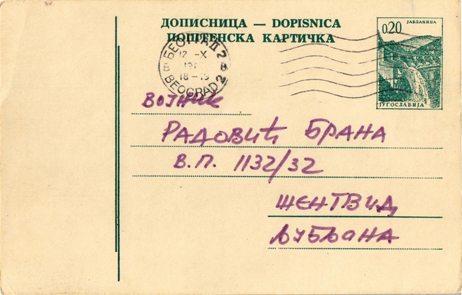 ДОПИСНИЦА — DOPISNICA
ПОШТЕНСКА КАРТИЧКА
JABLANICA
0,20
ЈУГОСЛАВИЈА
БЕОГРАД 2
12 -X
18-19
BEOGRAD 2
ВОЈНИК
РАДОВИЋ БРАНА
В.П. 1132/32
ШЕНТВИД
ЉУБЉАНА